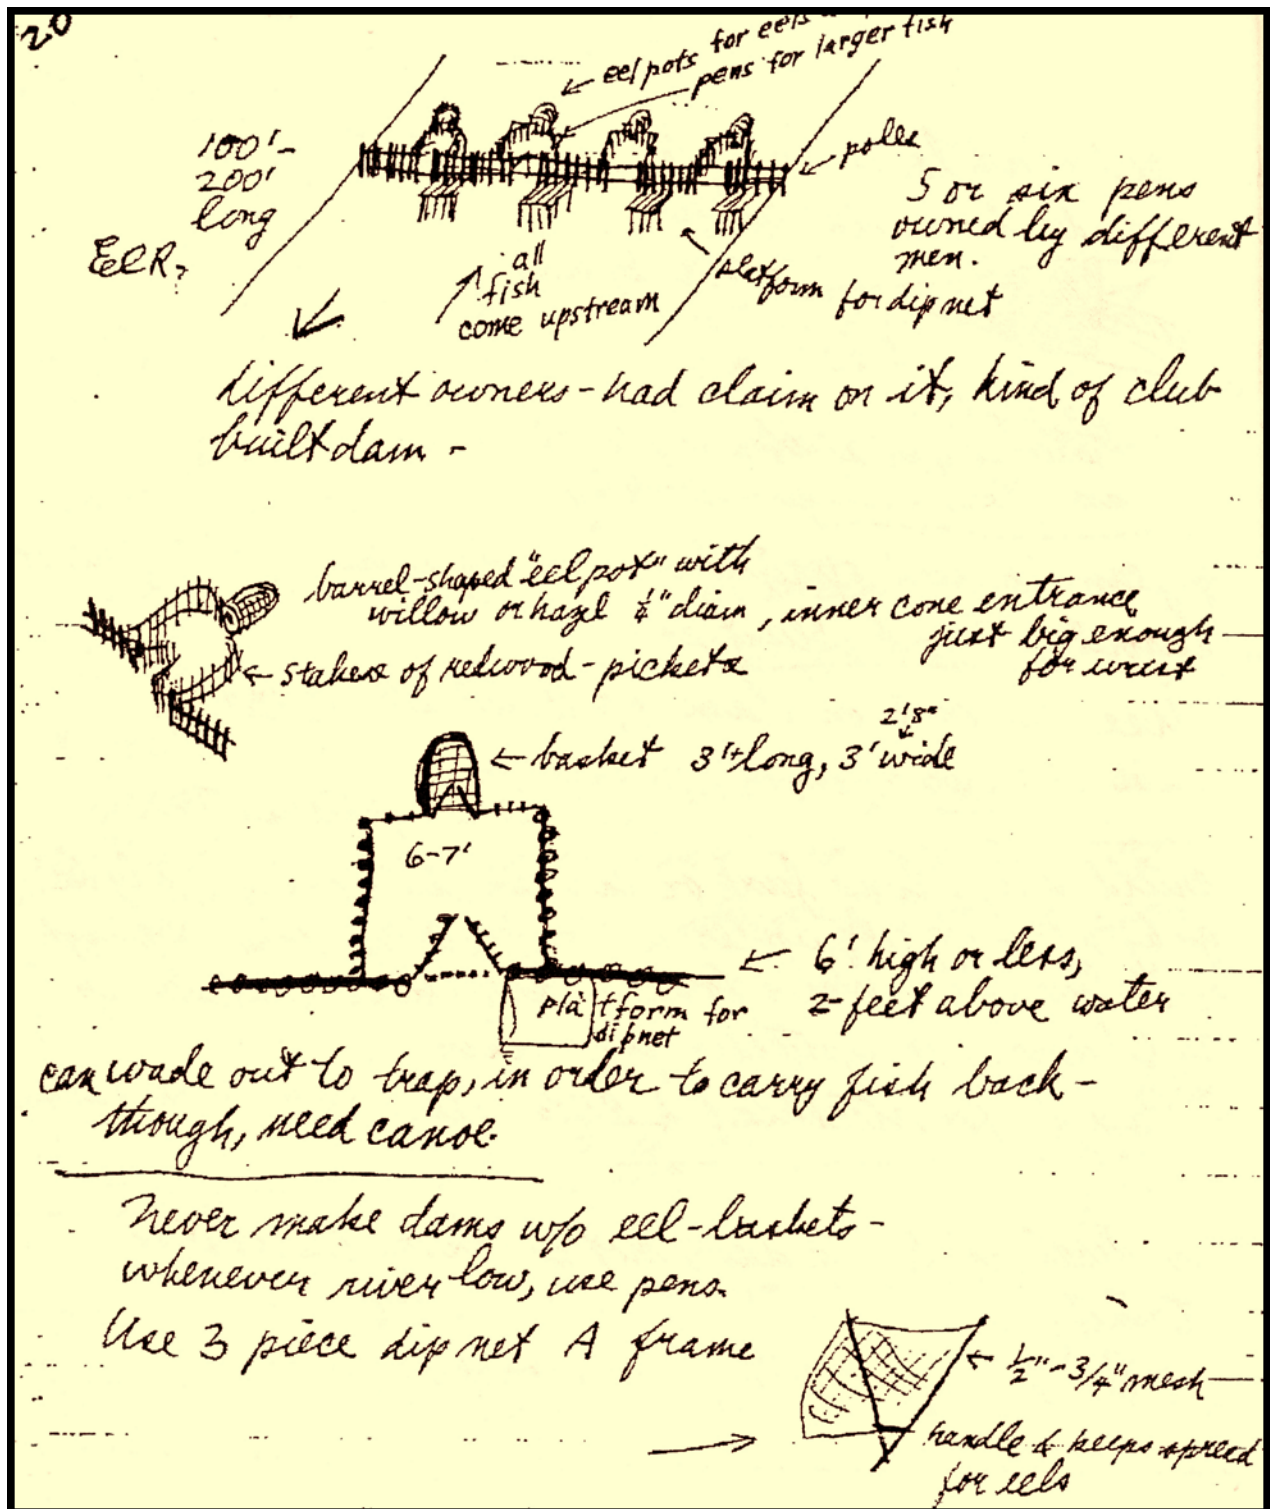 20
eel pots for eels
pens for larger fish
100'-
200'
long
EelR.
polls
5 or six pens
owned by different
men.
all
fish
come upstream
platform for dip net
different owners - had claim on it, kind of club
built dam -
barrel-shaped "eel pot" with
willow or hazel ¼" diam, inner cone entrance
just big enough
for wrist
← stakes of redwood - pickets
2'8"
← basket 3'+ long, 3' wide
6-7'
← 6' high or less,
2-feet above water
platform for
dipnet
can wade out to trap, in order to carry fish back -
though, need canoe.
Never make dams w/o eel-baskets -
whenever river low, use pens.
Use 3 piece dip net A frame
← ½"-3/4" mesh
handle & keeps spread
for eels